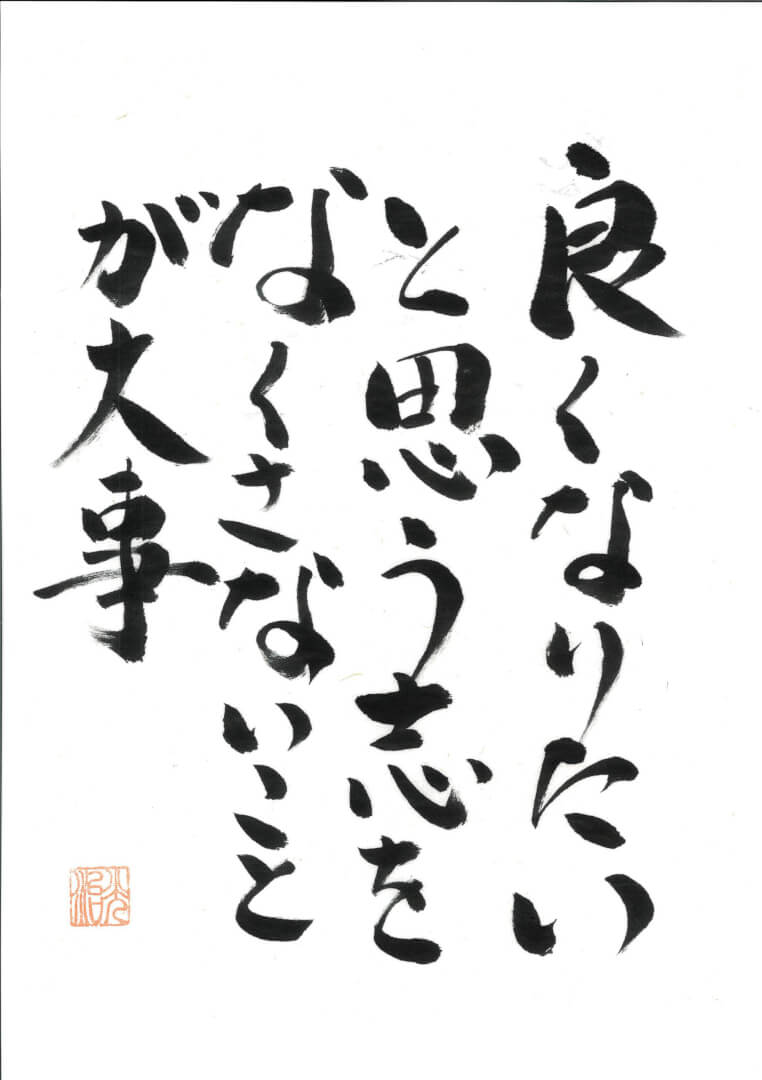 良くなりたい
と思う志を
なくさないこと
が大事